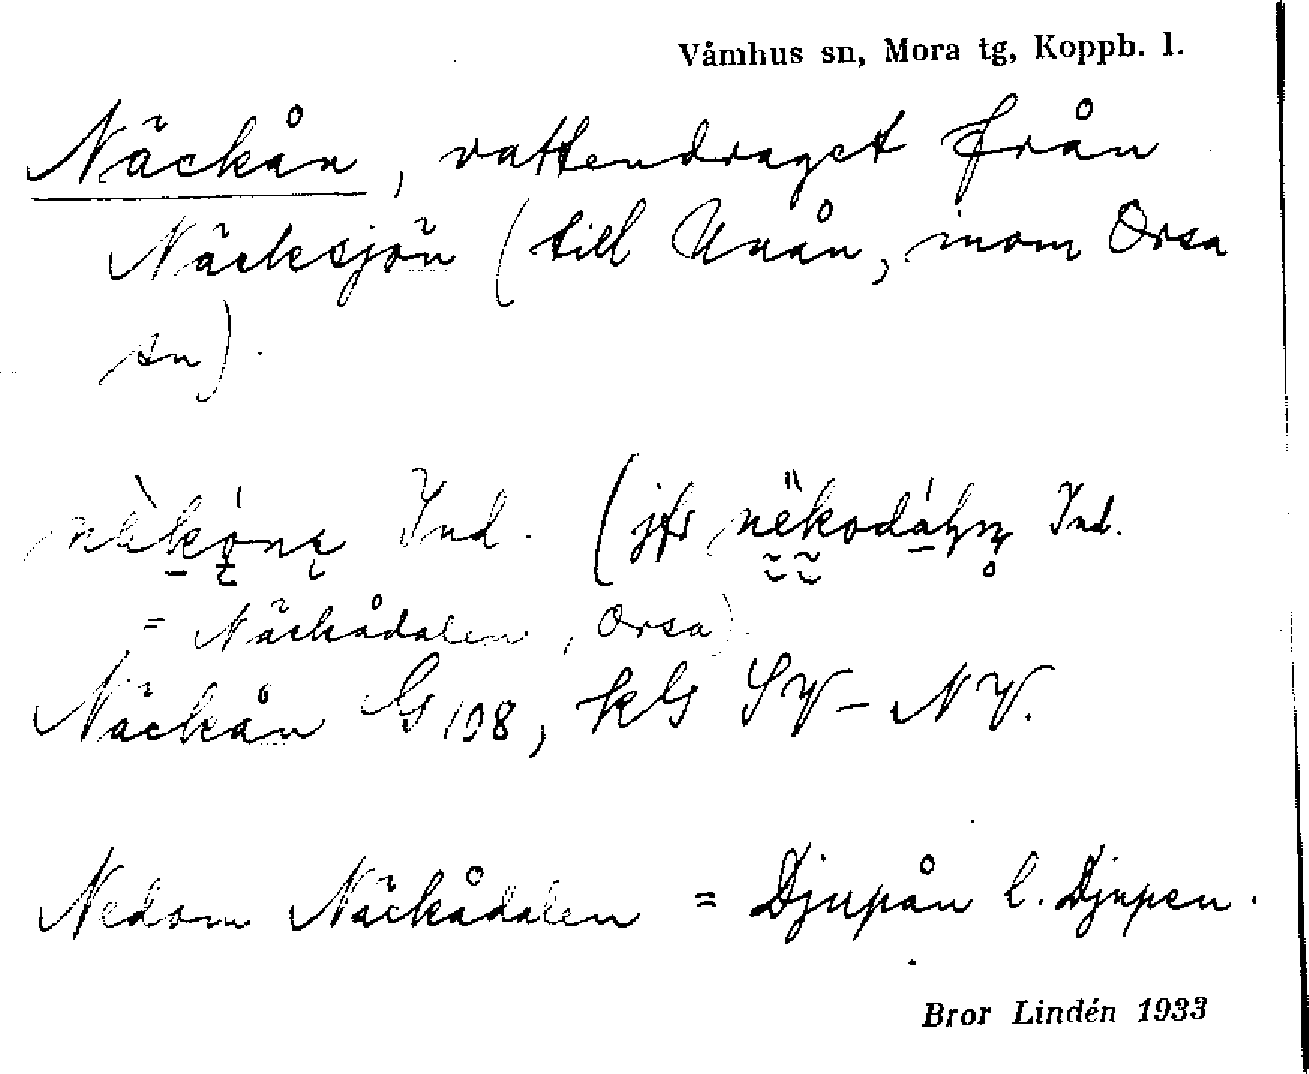 Våmhus sn, Mora tg, Koppb. l.
Näckån, vattendraget från
Näcksjön (till Unån, inom Orsa
sn).
Ind. (jfr Ind.
= Näckådalen, Orsa)
Näckån G 108, kG SV – NV.
Nedom Näckådalen = Djupån l. Djupen.
Bror Lindén 1933